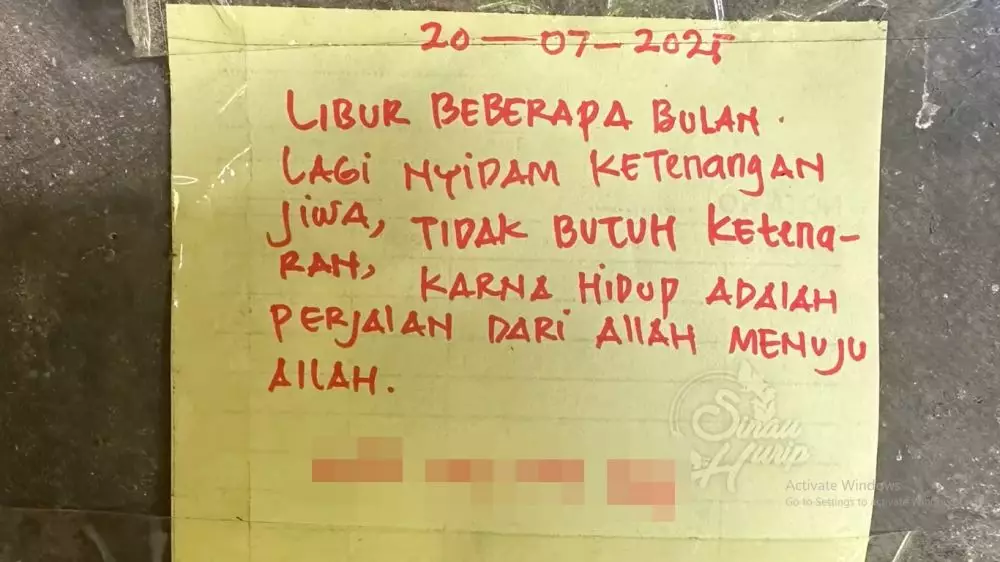 20-07-2025
LIBUR BEBERAPA BULAN.
LAGI NYIDAM KETENANGAN
JIWA, TIDAK BUTUH KETENA-
RAN, KARNA HIDUP ADALAH
PERJALAN DARI ALLAH MENUJU
ALLAH.
Sinau
Hurip
Activate Windows
Go to Settings to activate Windows